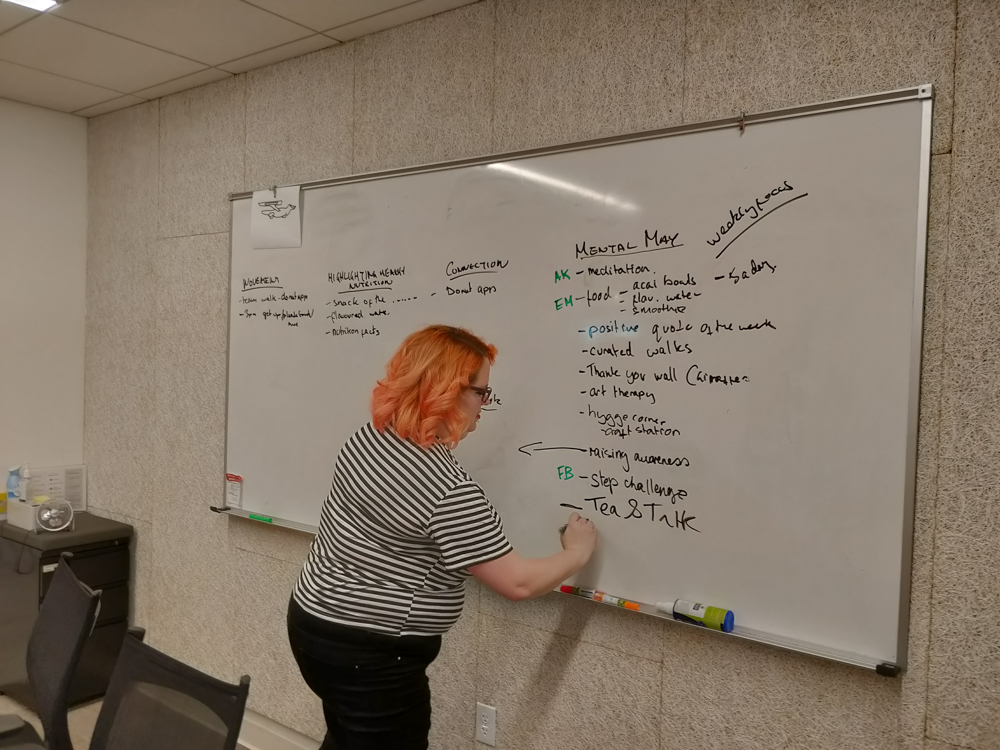 MOVEMENT
- team walk - donut app
- 3pm get up
HIGHLIGHTING HEALTHY
NUTRITION
- snack of the ......
- flavoured wate.
- nutrition facts
CONNECTION
- Donut app
MENTAL MAY
weekly focus
AK - meditation.
EM - food - acai bowls - 5 a day
- flav. water
- smoothie
- positive quote of the week
- curated walks
- Thank you wall
- art therapy
- hygge corner
- craft station
- raising awareness
FB - Step challenge
- Tea & Talk